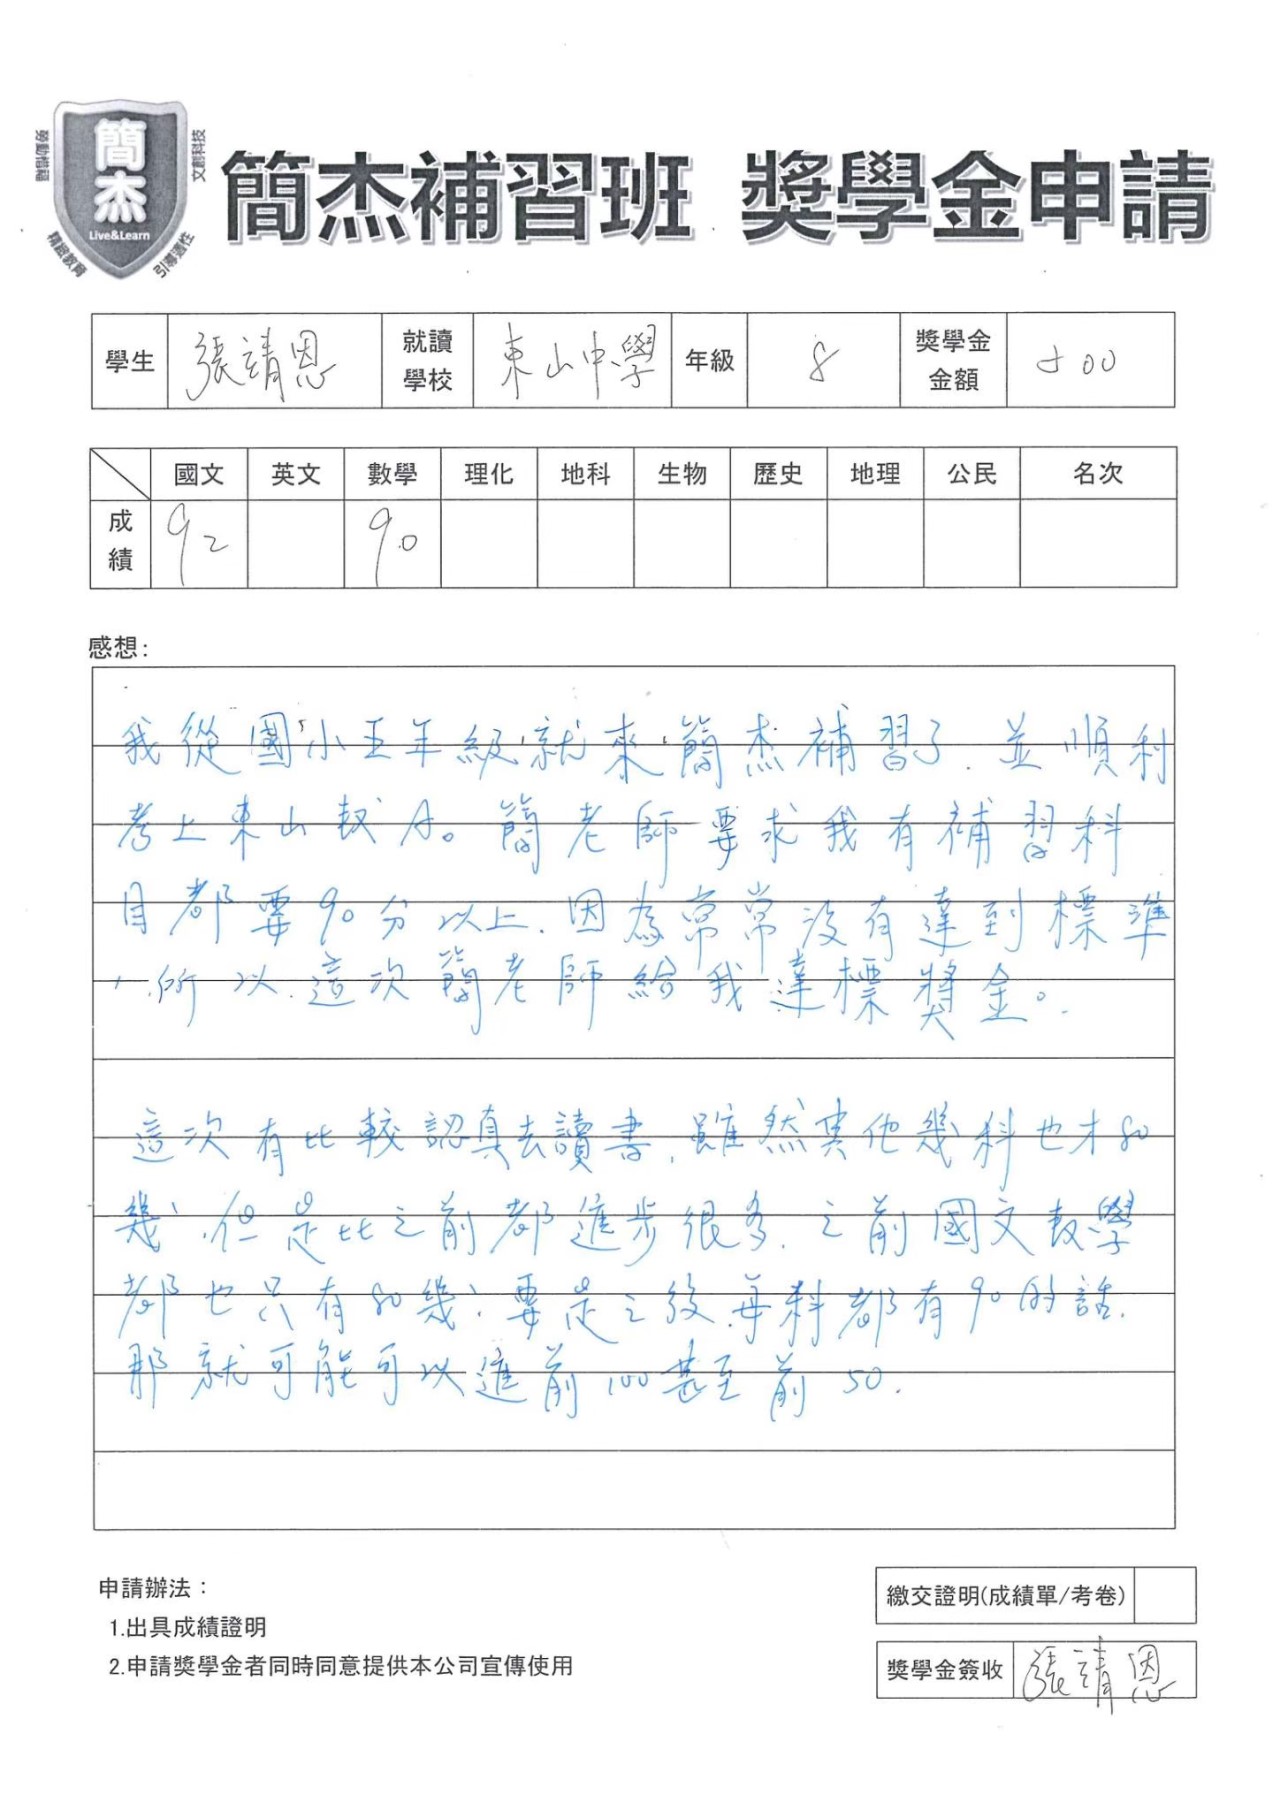 簡杰
Live&Learn
勞動惜福
精緻教育
引導適性
文創科技
簡杰補習班 獎學金申請
學生 張靖恩 就讀學校 東山中學 年級 8 獎學金金額 500
國文 英文 數學 理化 地科 生物 歷史 地理 公民 名次
成績 92 90
感想:
我從國小五年級就來簡杰補習了,並順利
考上東山數A。簡老師要求我有補習科
目都要90分以上,因為常常沒有達到標準
,所以這次簡老師給我達標獎金。
這次有比較認真去讀書,雖然其他幾科也才80
幾,但是比之前都進步很多,之前國文數學
都也只有80幾,要是之後每科都有90的話,
那就可能可以進前100甚至前50.
申請辦法:
1.出具成績證明
2.申請獎學金者同時同意提供本公司宣傳使用
繳交證明(成績單/考卷)
獎學金簽收 張靖恩